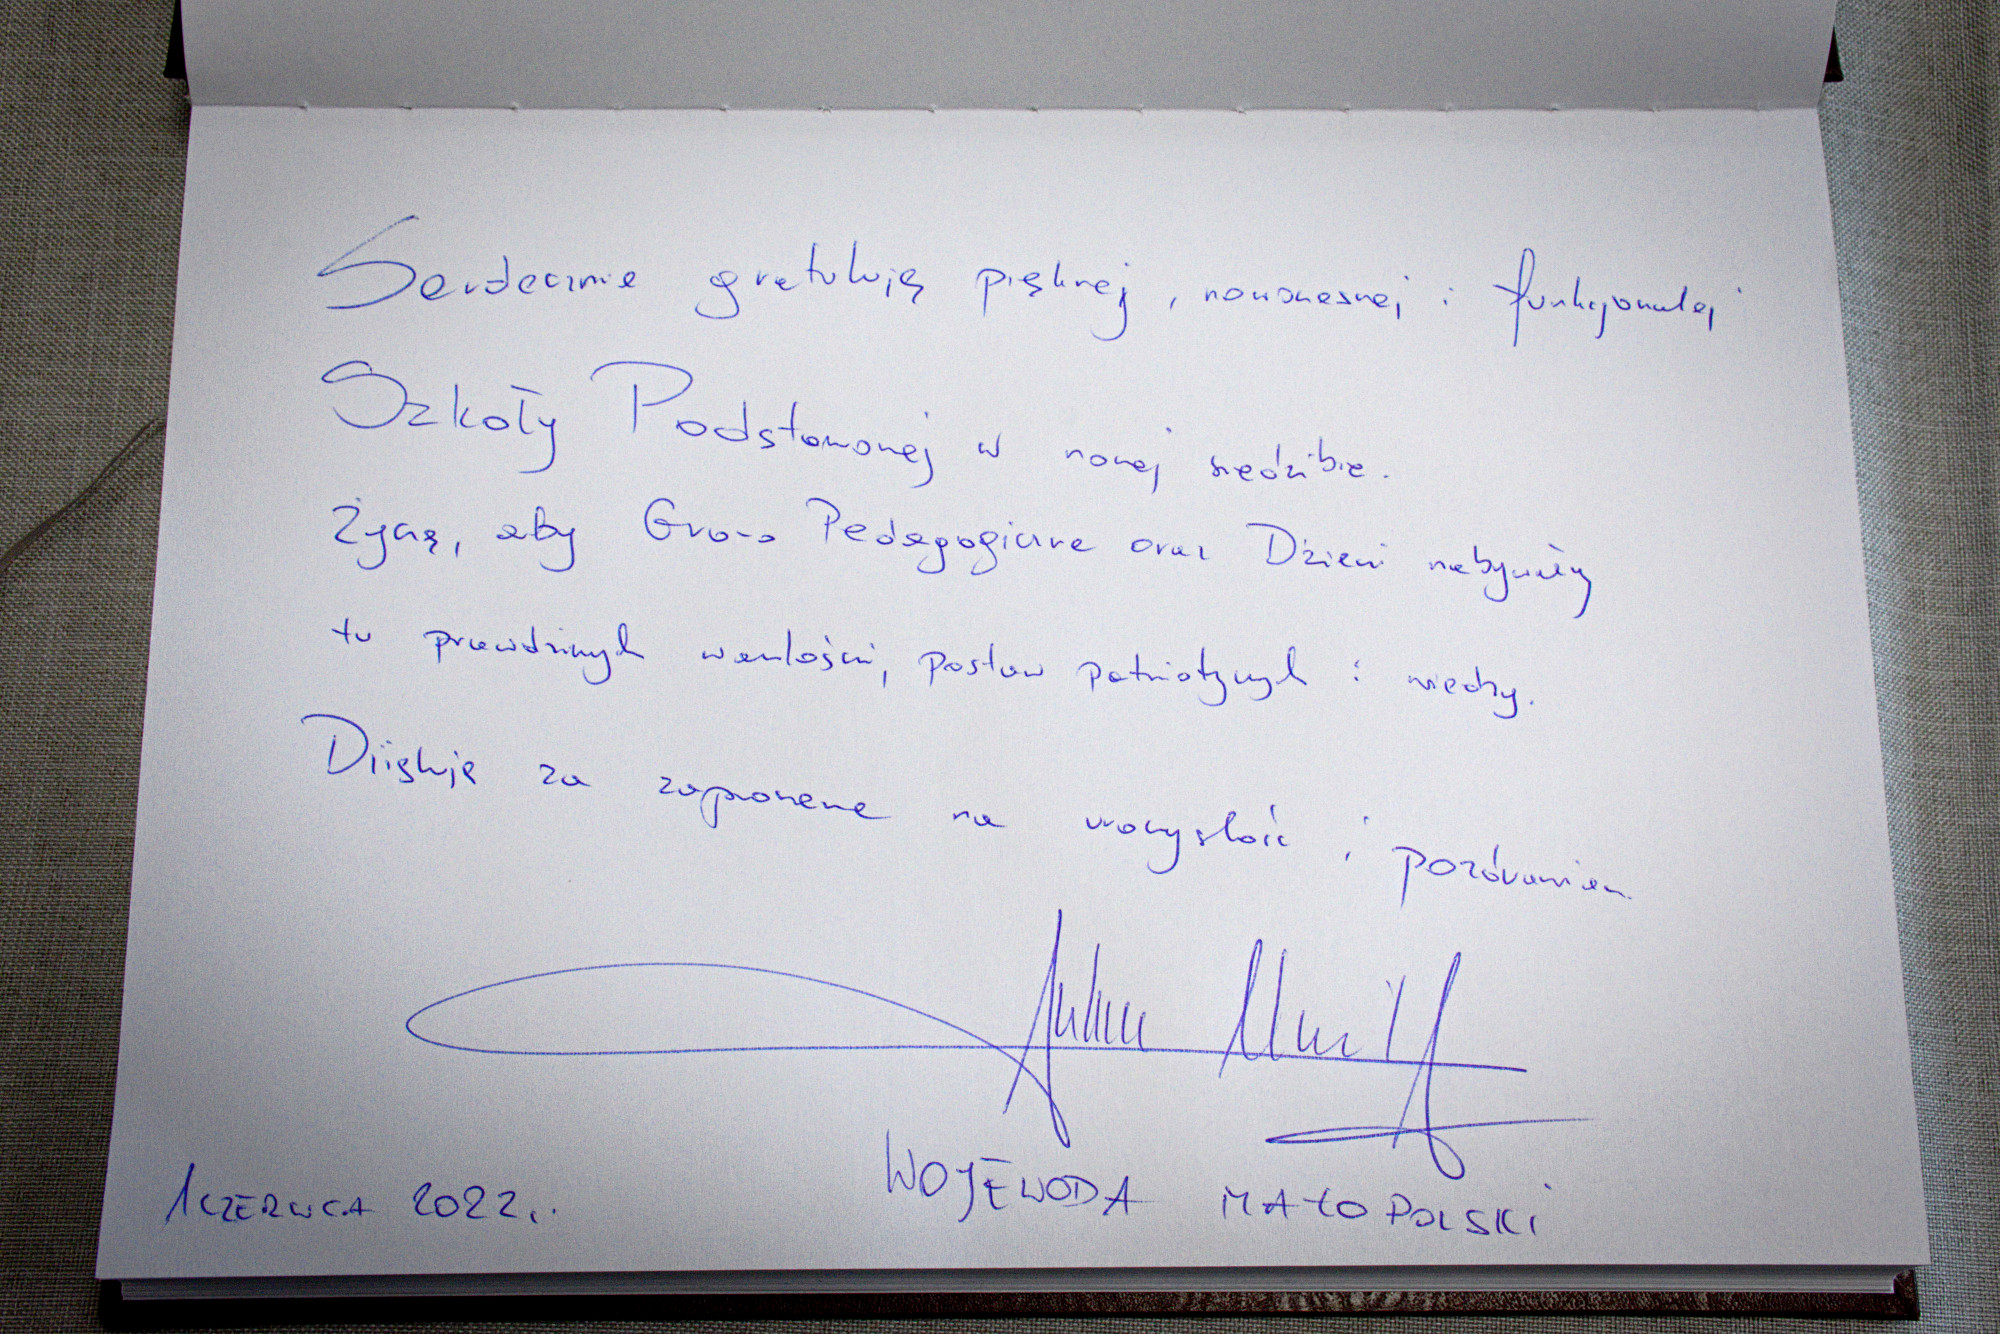 Serdecznie gratuluję pięknej, nowoczesnej i funkcjonalnej
Szkoły Podstawowej w nowej siedzibie.
Życzę, aby Grono Pedagogiczne oraz Dzieci nabywały
tu prawdziwych wartości, postaw patriotycznych i wiedzy.
Dziękuję za zaproszenie na uroczystość i pozdrawiam.
WOJEWODA MAŁOPOLSKI
1 CZERWCA 2022 r.